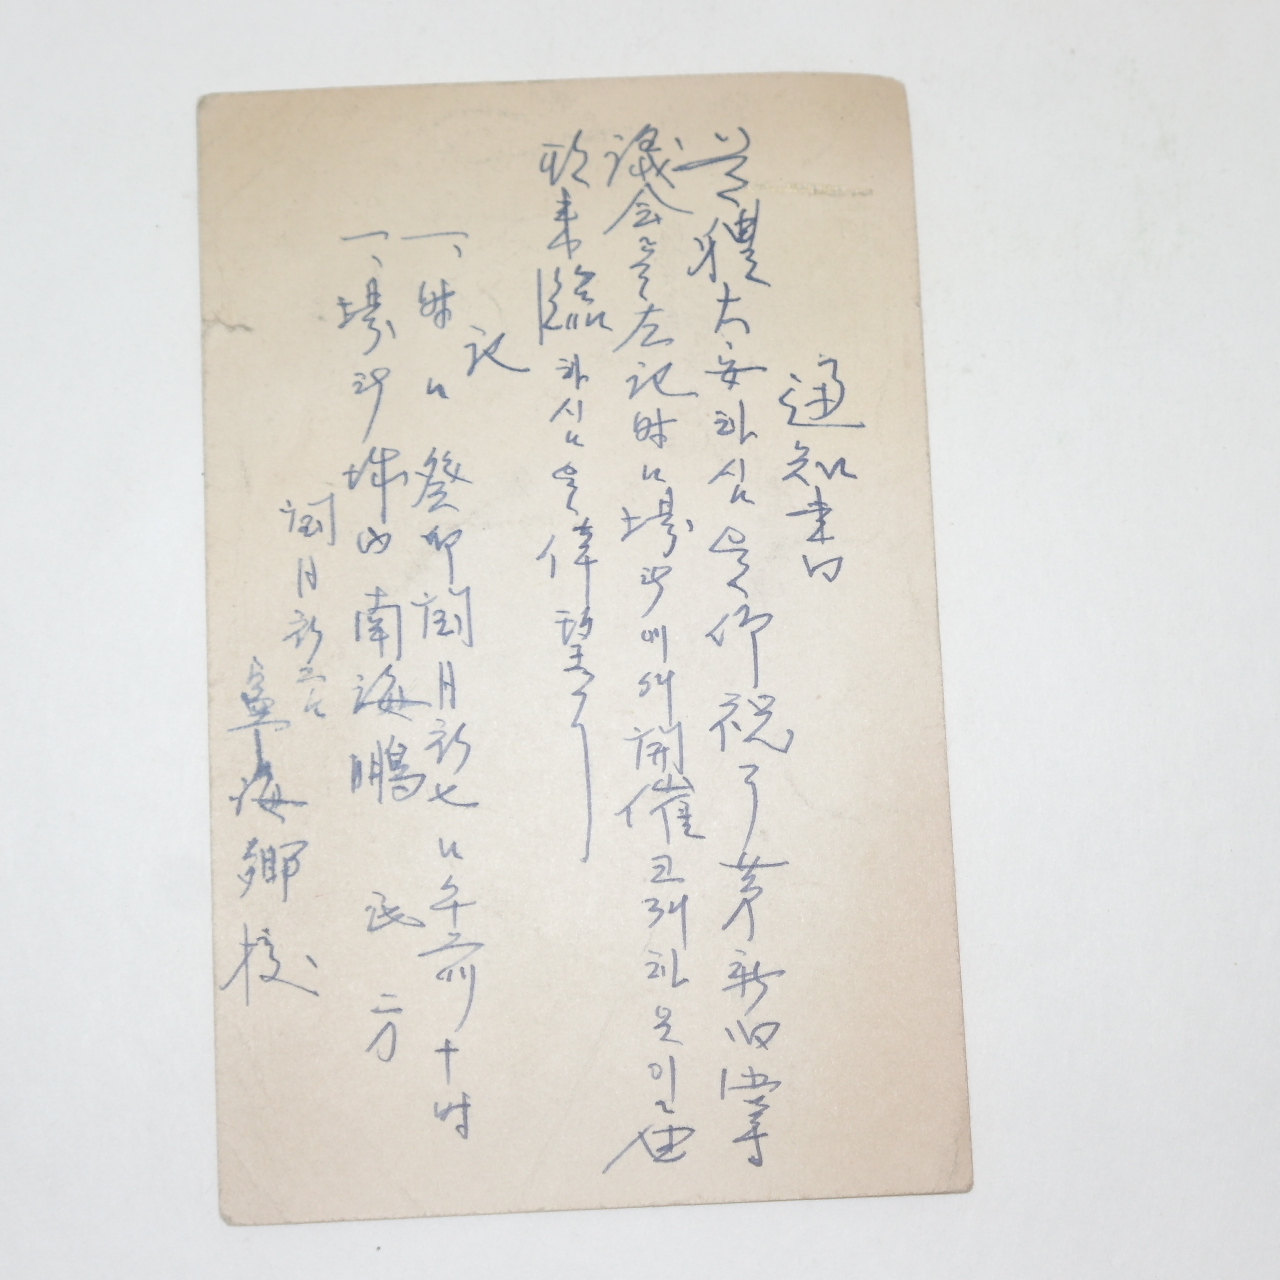 通知書
體大安하심을仰祝了第新旧掌
議会을左記時日場所에서開催코저하온이
來臨하심을倖望
記
一、時日 癸卯閏月初七日午前十時
一、場所 城內南海鵬 氏 方
閏月初三日
寧海鄕校